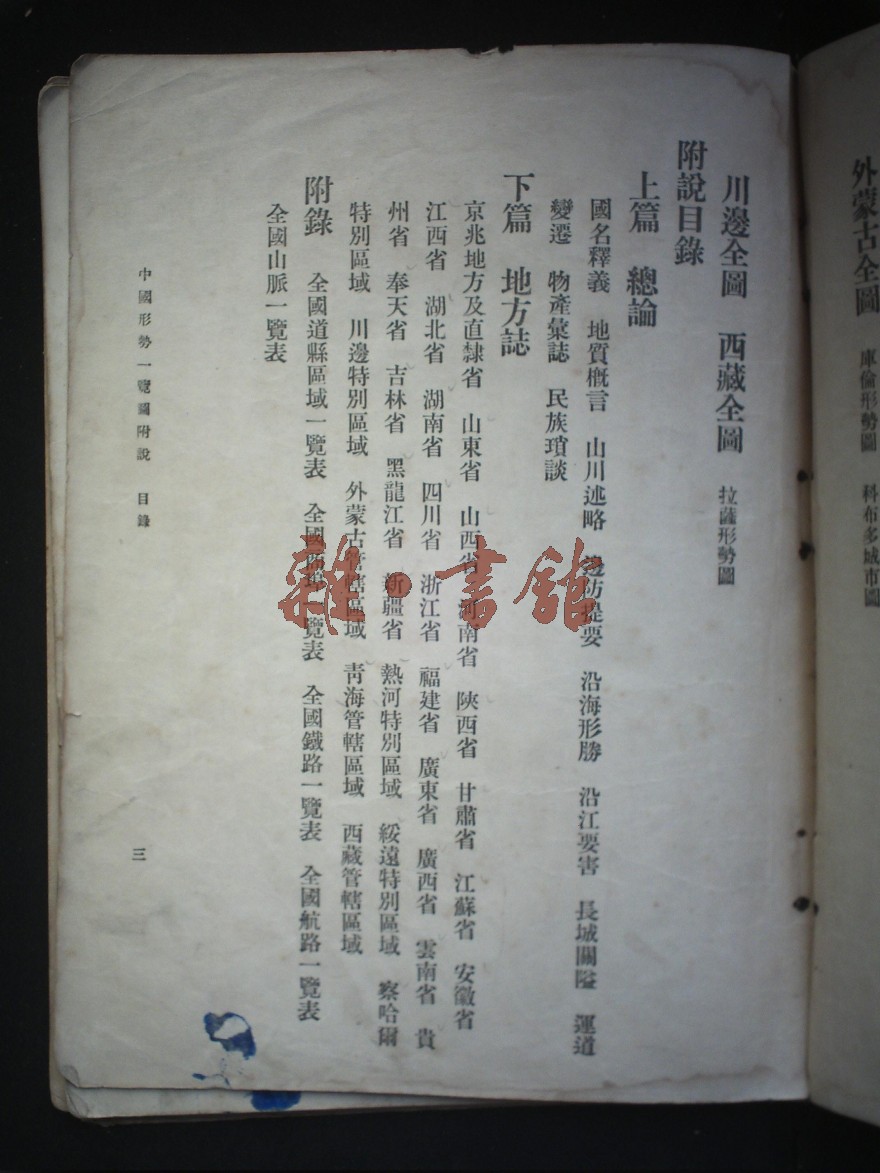 外蒙古全圖 庫倫形勢圖 科布多城市圖
川邊全圖 西藏全圖 拉薩形勢圖
附說目錄
上篇 總論
國名釋義 地質概言 山川述略 邊防提要 沿海形勝 沿江要害 長城關隘 運道
變遷 物產彙誌 民族瑣談
下篇 地方誌
京兆地方及直隸省 山東省 山西省 河南省 陝西省 甘肅省 江蘇省 安徽省
江西省 湖北省 湖南省 四川省 浙江省 福建省 廣東省 廣西省 雲南省 貴
州省 奉天省 吉林省 黑龍江省 新疆省 熱河特別區域 綏遠特別區域 察哈爾
特別區域 川邊特別區域 外蒙古管轄區域 青海管轄區域 西藏管轄區域
附錄 全國道縣區域一覽表 全國商埠一覽表 全國鐵路一覽表 全國航路一覽表
全國山脈一覽表
中國形勢一覽圖附說 目錄
三
雜·書館